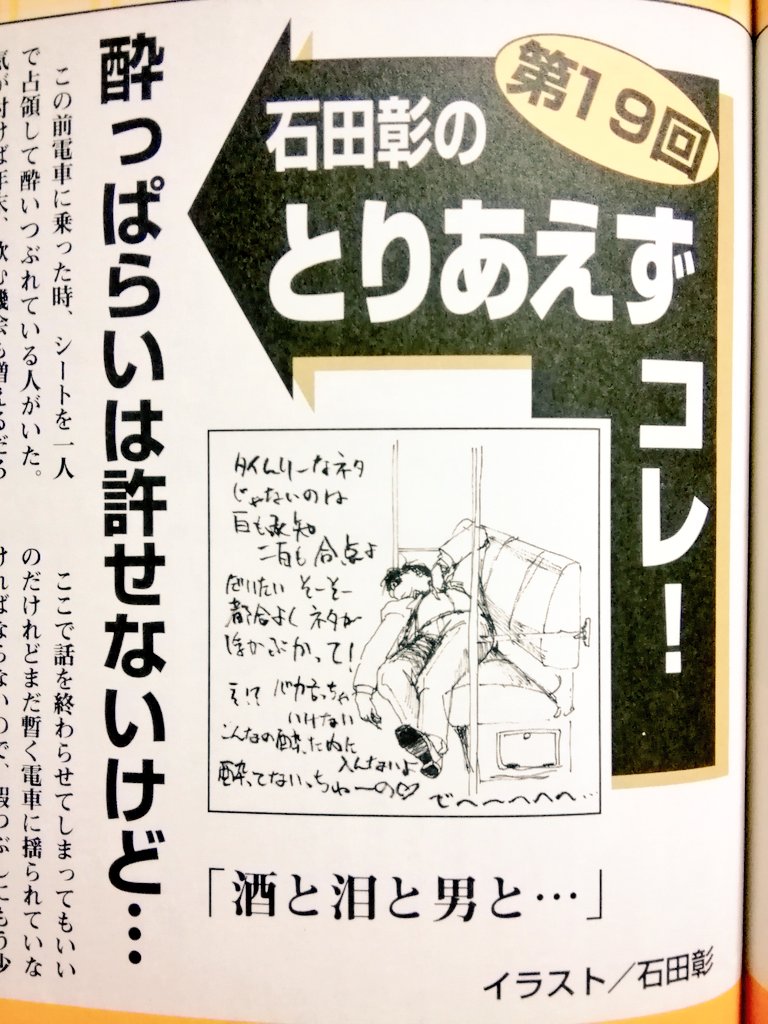 第19回
石田彰の
とりあえず
コレ！
タイムリーなネタ
じゃないのは
百も承知
二百も合点よ
だいたい そーそー
都合よく ネタが
浮かぶかって!
え!? バカ言っちゃ
いけない
こんなの酔ったために
入んないよ
酔ってないっちゅーの♡
でへ〜〜へへへ…
「酒と泪と男と…」
イラスト／石田彰
酔っぱらいは許せないけど…
この前電車に乗った時、シートを一人
で占領して酔いつぶれている人がいた。
気が付けば年末、飲む機会も増えるだろ
ここで話を終わらせてしまってもいい
のだけれどまだ暫く電車に揺られていな
ければならないので、暇つぶしにもう少